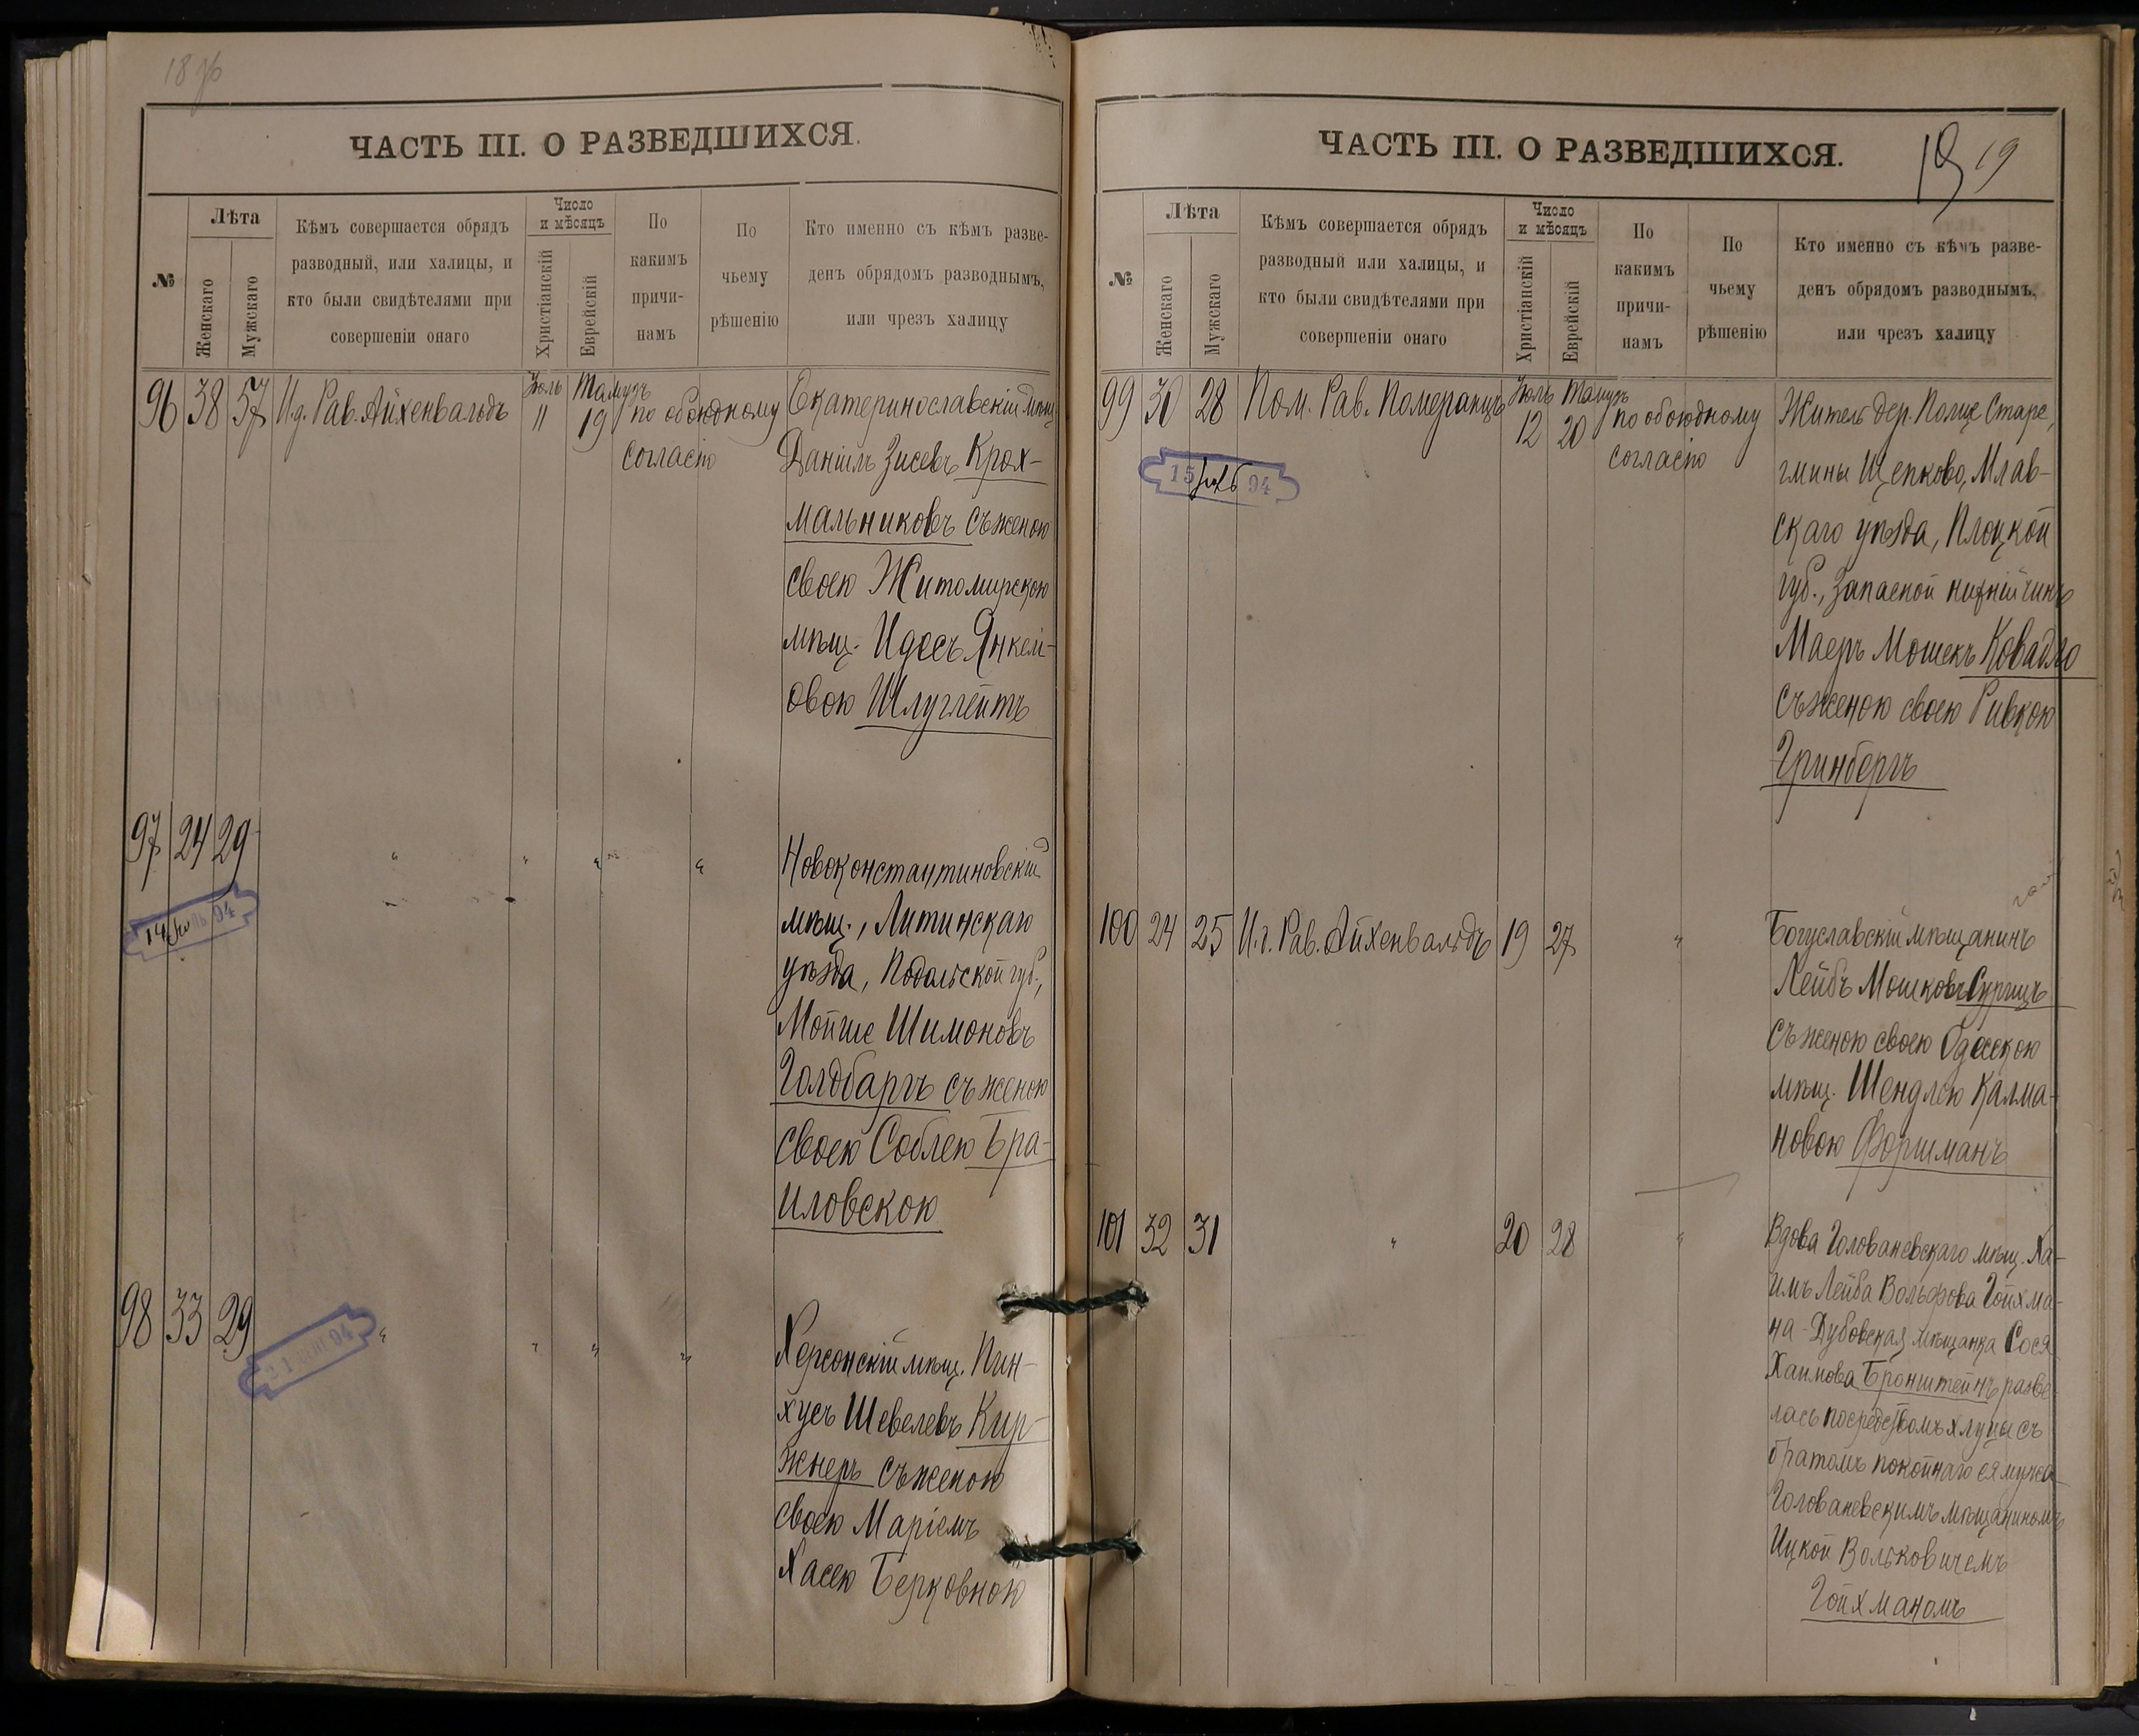 ЧАСТЬ III. О РАЗВЕДШИХСЯ.
№
Лѣта
Женскаго
Мужскаго
Кѣмъ совершается обрядъ
разводный, или халицы, и
кто были свидѣтелями при
совершеніи онаго
Число
и мѣсяцъ
Христіанскій
Еврейскій
По
какимъ
причи-
намъ
По
чьему
рѣшенію
Кто именно съ кѣмъ разве-
денъ обрядомъ разводнымъ,
или чрезъ халицу
96 38 57 И.д. Рав. Айхенвальдъ
Іюль Тамузъ
11 19
по обоюдному
согласію
Екатеринославскій мѣщ.
Даніилъ Зисевъ Крах-
мальниковъ съ женою
своею Житомирскою
мѣщ. Идесъ Янкел-
овою Шлуглейтъ
97 24 29 " " " "
14 94
Новоконстантиновскій
мѣщ., Литинскаго
уѣзда, Подольской губ.,
Мойше Шимоновъ
Голдбаргъ съ женою
своею Соблею Бра-
иловскою
98 33 29 " " " "
Херсонскій мѣщ. Пин-
хусъ Шевелевъ Кир-
жнеръ съ женою
своею Маріемъ
Хасею Берковною
ЧАСТЬ III. О РАЗВЕДШИХСЯ.
19 19
№
Лѣта
Женскаго
Мужскаго
Кѣмъ совершается обрядъ
разводный или халицы, и
кто были свидѣтелями при
совершеніи онаго
Число
и мѣсяцъ
Христіанскій
Еврейскій
По
какимъ
причи-
намъ
По
чьему
рѣшенію
Кто именно съ кѣмъ разве-
денъ обрядомъ разводнымъ,
или чрезъ халицу
99 30 28 Пом. Рав. Померанцъ
Іюль Тамузъ
12 20
по обоюдному
согласію
15 94
Житель дер. Полце Старе,
гмины Щепково, Млав-
скаго уѣзда, Плоцкой
губ., запасной нижній чинъ
Маеръ Мошекъ Ковадло
съ женою своею Ривкою
Гринбергъ
100 24 25 И.д. Рав. Айхенвальдъ 19 27 "
Богуславскій мѣщанинъ
Лейбъ Мошковъ Сурицъ
съ женою своею Одесскою
мѣщ. Шендлею Калма-
новою Форшманъ
101 32 31 " 20 28 "
Вдова Голованевскаго мѣщ. Ха-
имъ Лейба Вольфова Гойхма-
на - Дубовская мѣщанка Сося
Хаимова Бронштейнъ разве-
лась посредствомъ хлуцы съ
братомъ покойнаго ея мужа
Голованевскимъ мѣщаниномъ
Ицкой Вольковичемъ
Гойхманомъ